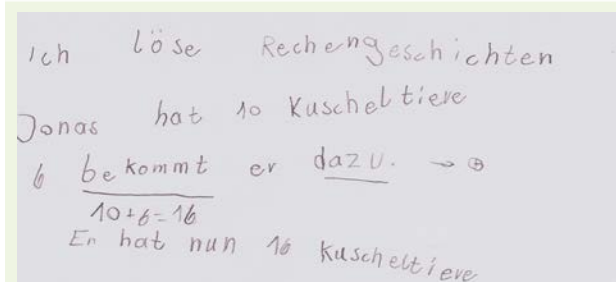 ich löse Rechengeschichten
Jonas hat 10 Kuscheltiere
6 bekommt er dazu. → ⊕
10+6=16
Er hat nun 16 Kuscheltiere